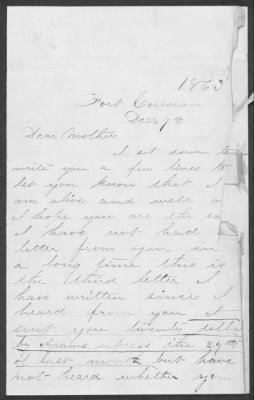 1863
Fort Corcoran
Dec 7th
Dear Mother
I sit down to
write you a few lines to
let you know that I
am alive and well &
I hope you are the sa
I have not had
letter from you in
a long time this is
the third letter I
have written since I
heard from you I
sent you twenty dolla
by Adams express the 29th
of last month but have
not heard whether you